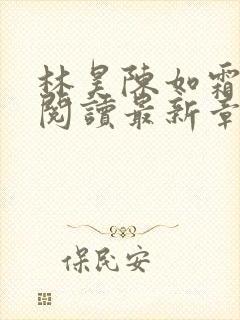 林昊陳如霜
閱讀最新章
保民安